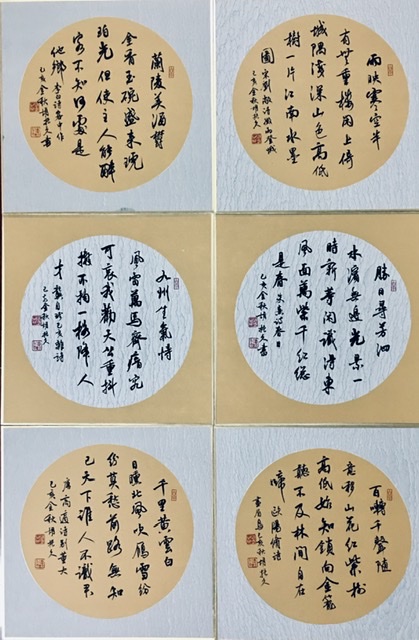 雨映寒空半
有無重樓閒上倚
城隅淺深山色高低
樹一片江南水墨
圖 宋劉敞詩微山登城
己亥金秋
蘭陵美酒鬱
金香玉碗盛來琥
珀光但使主人能醉
客不知何處是
他鄉 李白詩客中作
己亥金秋
勝日尋芳泗
水濱無邊光景一
時新等閒識得東
風面萬紫千紅總
是春 朱熹詩春日
己亥金秋
九州生氣恃
風雷萬馬齊瘖究
可哀我勸天公重抖
擻不拘一格降人
才 龔自珍己亥雜詩
己亥金秋
百囀千聲隨
意移山花紅紫樹
高低始知鎖向金籠
聽不及林間自在
啼 歐陽修詩
畫眉鳥己亥秋
千里黃雲白
日曛北風吹雁雪紛
紛莫愁前路無知
己天下誰人不識君
唐高適詩別董大
己亥金秋